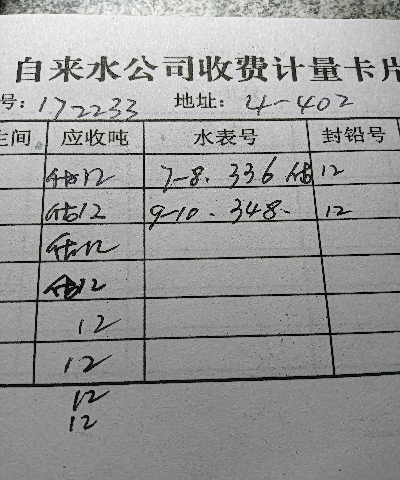 自来水公司收费计量卡片
号:172233 地址:4-402
生间 应收吨 水表号 封铅号
估12 7-8. 336 估 12
估12 9-10. 348- 12
估12
估12
12
12
12
12